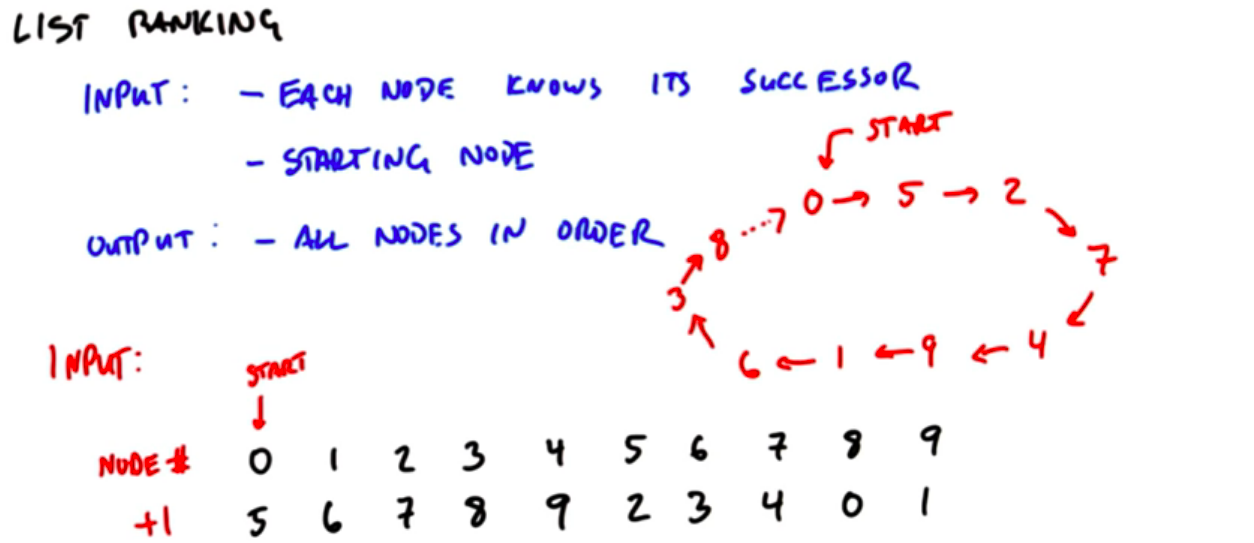 LIST RANKING
INPUT: - EACH NODE KNOWS ITS SUCCESSOR
- STARTING NODE
START
0 → 5 → 2
OUTPUT: - ALL NODES IN ORDER
8
7
3
6 ← 1 ← 9 ← 4
INPUT:
START
NODE # 0 1 2 3 4 5 6 7 8 9
+1 5 6 7 8 9 2 3 4 0 1